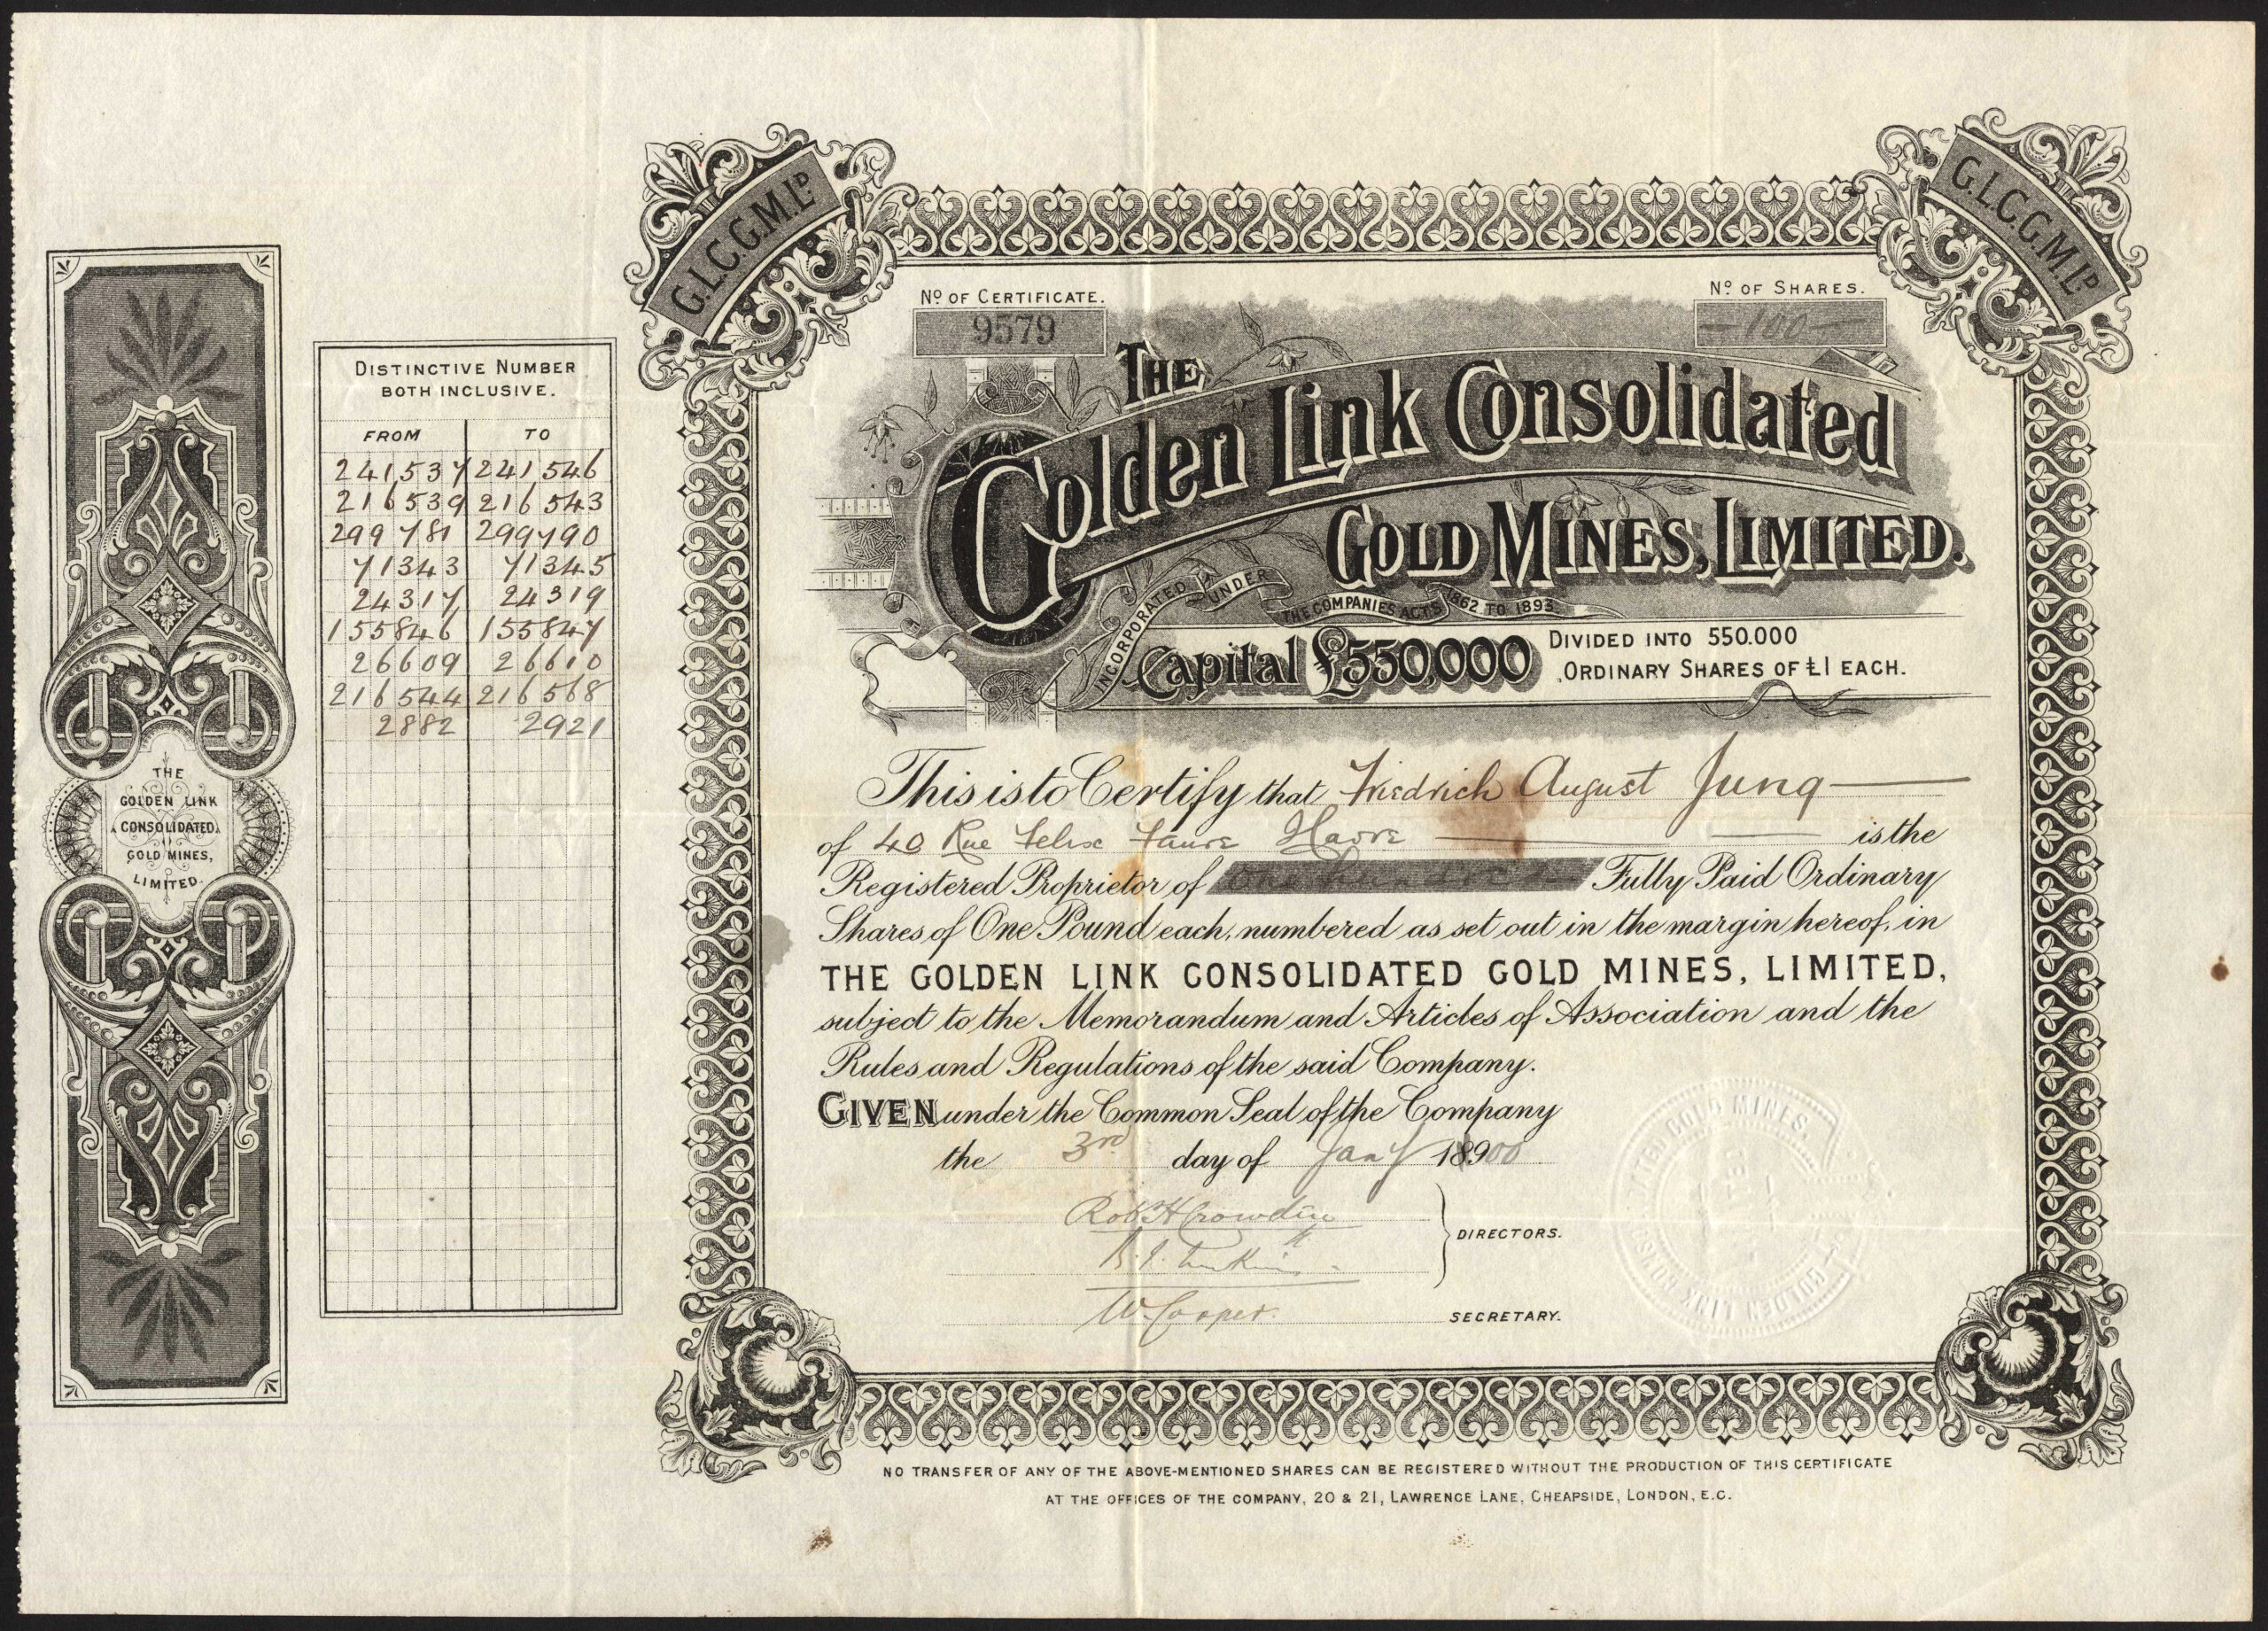 G.L.C.G.M.LD.
G.L.C.G.M.LD.
No OF CERTIFICATE.
9579
No OF SHARES.
100
THE
Golden Link Consolidated
GOLD MINES, LIMITED.
INCORPORATED UNDER THE COMPANIES ACTS 1862 TO 1893.
Capital £550,000
DIVIDED INTO 550.000
ORDINARY SHARES OF £1 EACH.
DISTINCTIVE NUMBER
BOTH INCLUSIVE.
FROM TO
241537 241546
216539 216543
299781 299790
71343 71345
24317 24319
155846 155847
26609 26610
216544 216568
2882 2921
THE
GOLDEN LINK
CONSOLIDATED
GOLD MINES,
LIMITED.
This is to Certify that Friedrich August Jung
of 40 Rue Felix Faure Havre is the
Registered Proprietor of One hundred Fully Paid Ordinary
Shares of One Pound each, numbered as set out in the margin hereof, in
THE GOLDEN LINK CONSOLIDATED GOLD MINES, LIMITED,
subject to the Memorandum and Articles of Association and the
Rules and Regulations of the said Company.
GIVEN under the Common Seal of the Company
the 3rd day of Jany 18900
Robt H Crowden
DIRECTORS.
W. Cooper.
SECRETARY.
GOLDEN LINK
GOLD MINES.
NO TRANSFER OF ANY OF THE ABOVE-MENTIONED SHARES CAN BE REGISTERED WITHOUT THE PRODUCTION OF THIS CERTIFICATE
AT THE OFFICES OF THE COMPANY, 20 & 21, LAWRENCE LANE, CHEAPSIDE, LONDON, E.C.